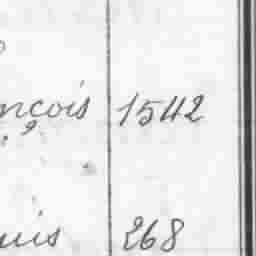 nçois 1542
uis 268